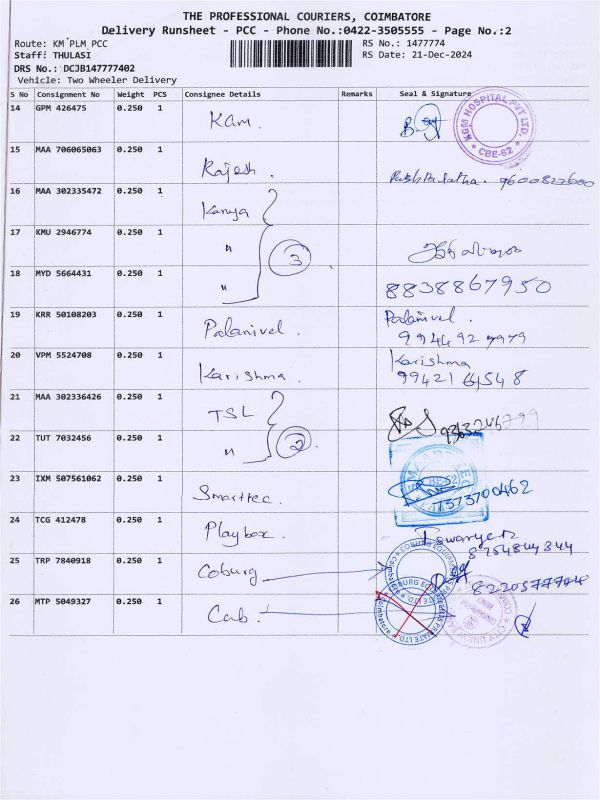 THE PROFESSIONAL COURIERS, COIMBATORE
Delivery Runsheet - PCC - Phone No.:0422-3505555 - Page No.:2
Route: KM PLM PCC
RS No.: 1477774
Staff: THULASI
RS Date: 21-Dec-2024
DRS No.: DCJB147777402
Vehicle: Two Wheeler Delivery
S No Consignment No Weight PCS Consignee Details Remarks Seal & Signature
14 GPM 426475 0.250 1 Kam.
KGM HOSPITAL PVT LTD. * CBE-62 *
15 MAA 706065063 0.250 1 Rajesh. 9600827600
16 MAA 302335472 0.250 1 Kanya
17 KMU 2946774 0.250 1 "
3
18 MYD 5664431 0.250 1 " 8838867950
19 KRR 50108203 0.250 1 Palanivel. Palanivel.
99449 27979
20 VPM 5524708 0.250 1 Karishma. Karishma
99421 64548
21 MAA 302336426 0.250 1 TSL 9363246799
22 TUT 7032456 0.250 1 "
2
CBE-62
23 IXM 507561062 0.250 1 Smarttec. 7373700462
24 TCG 412478 0.250 1 Playbox.
25 TRP 7840918 0.250 1 Coburg
COBURG EQUIPMENTS PRIVATE LTD.
26 MTP 5049327 0.250 1 Cub.
CITY UNION BANK